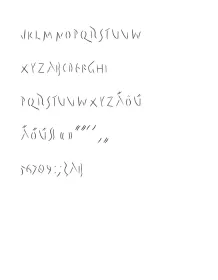 JKLMNOPQRSTUVW
XYZABCDEFGHI
PQRSTUVWXYZÄÖÜ
ÄÖÜß
56789:;